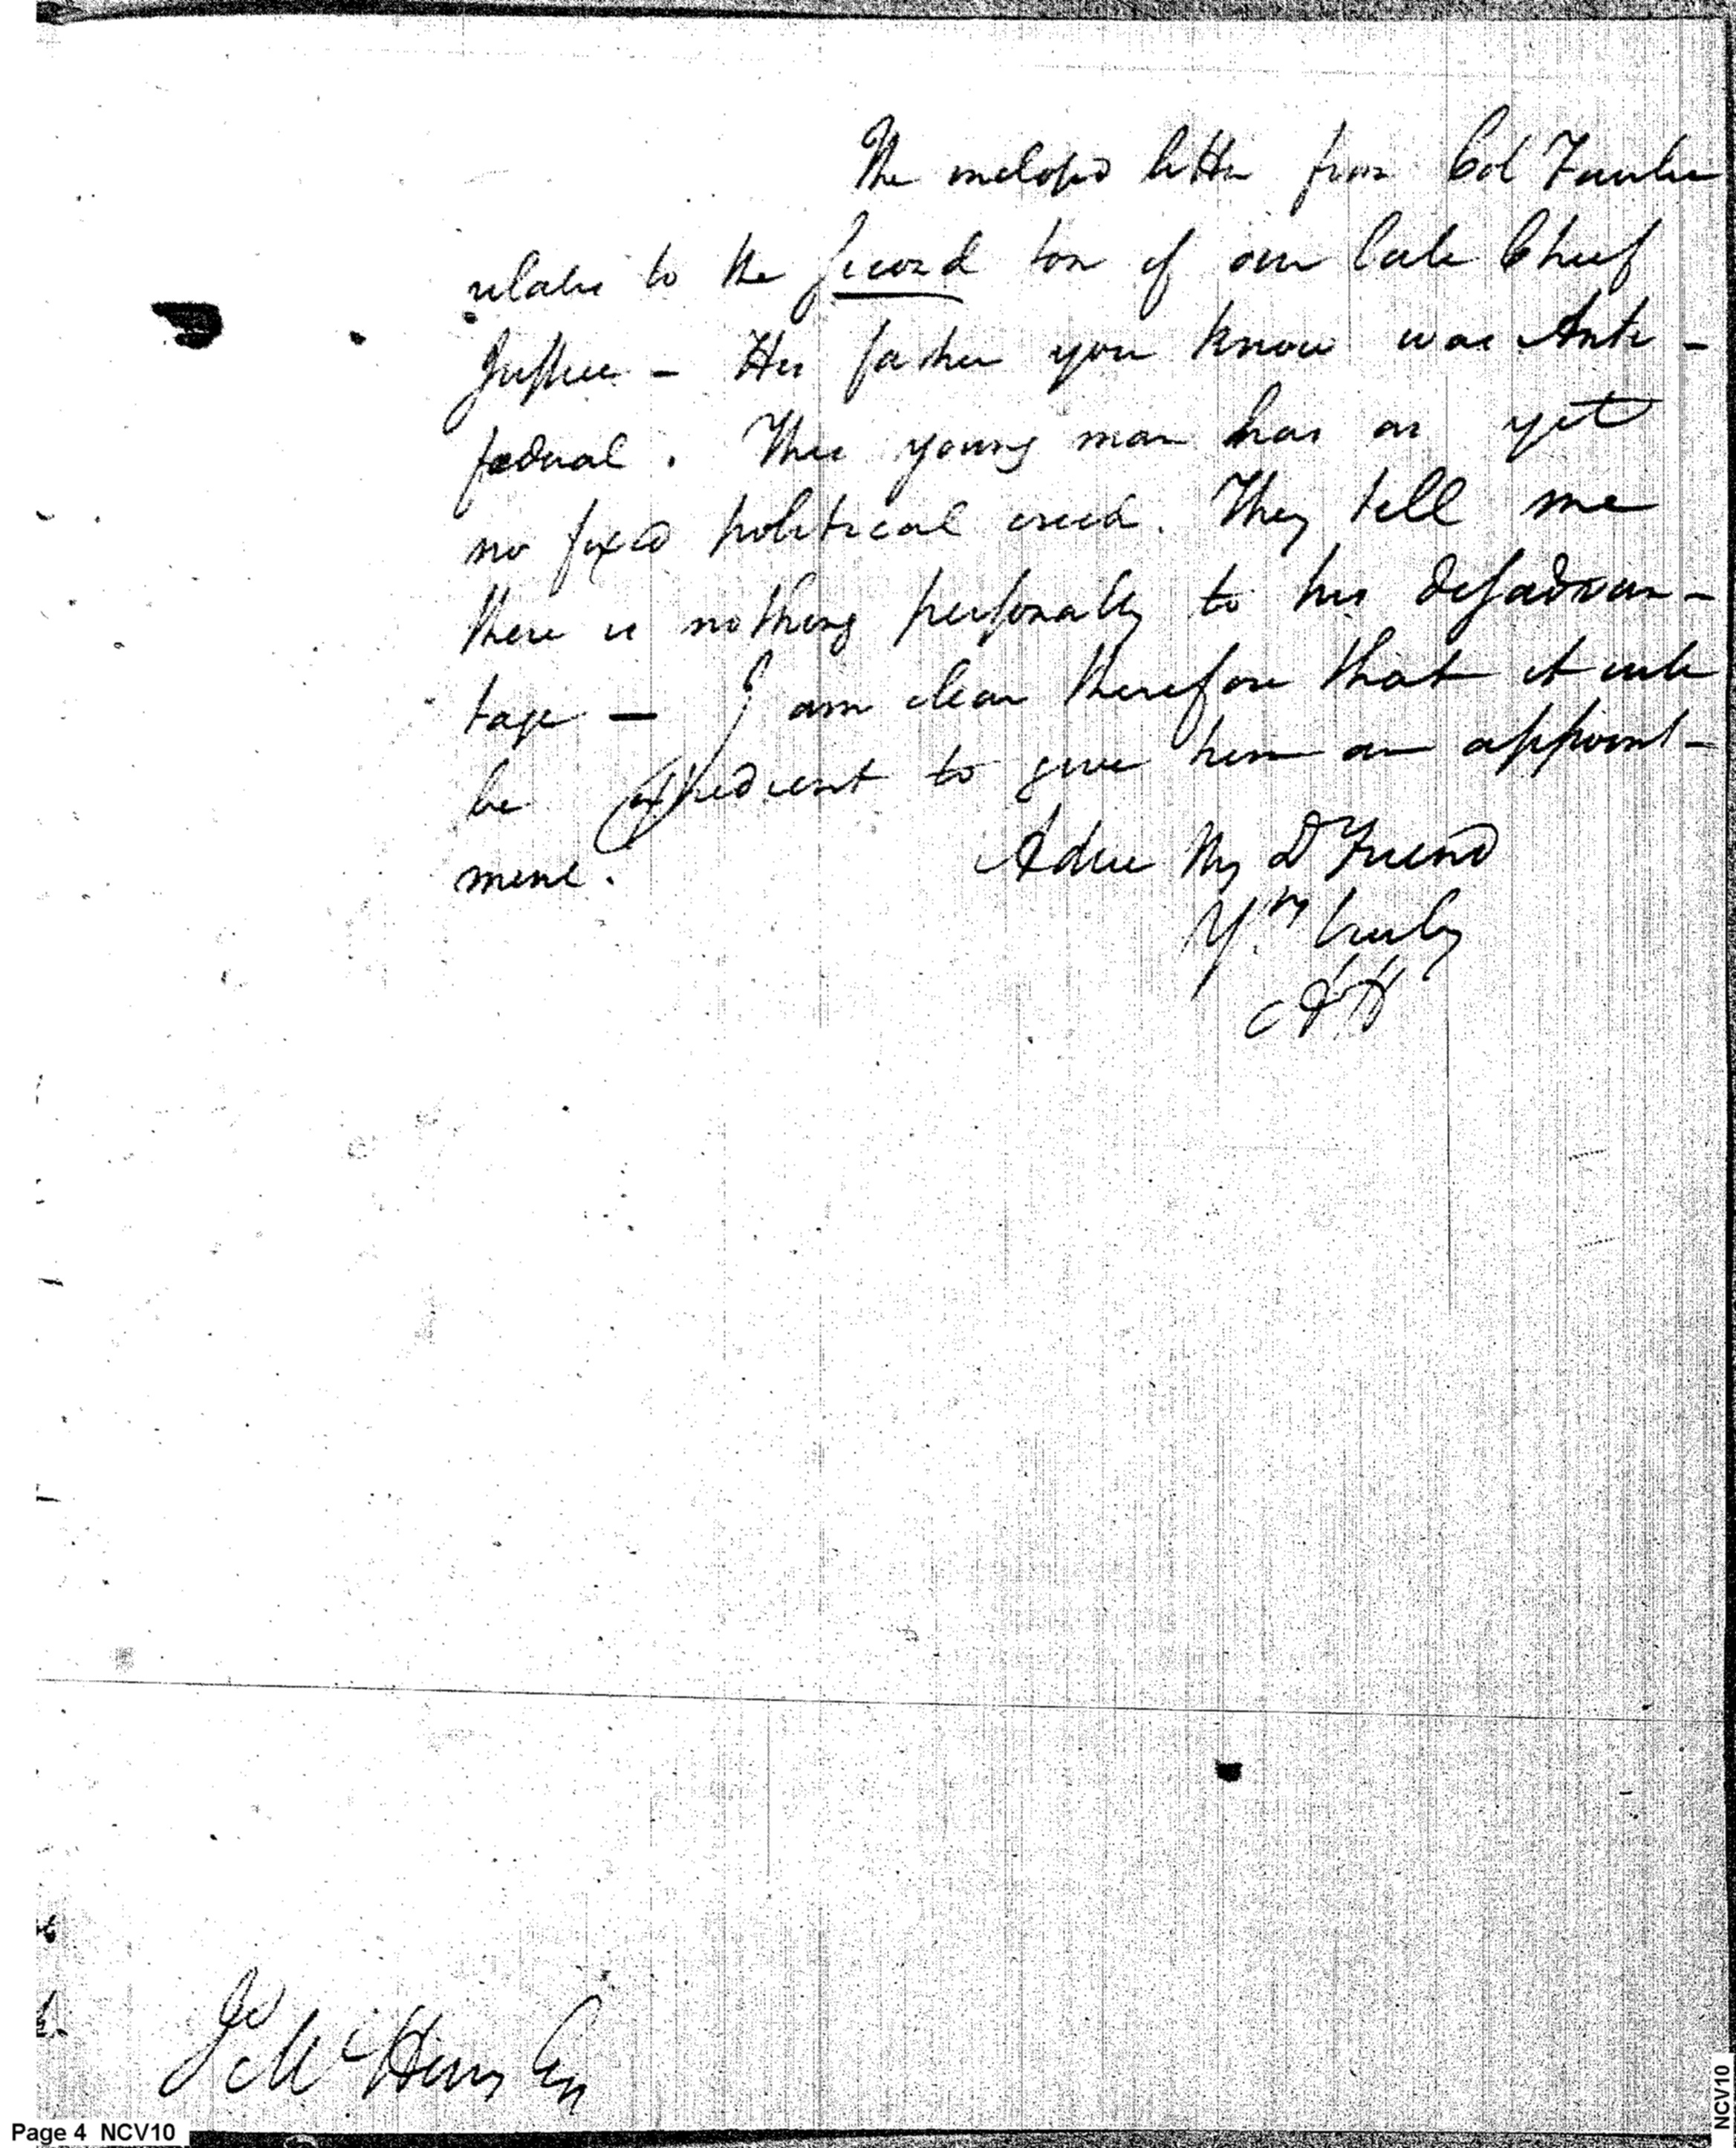 The inclosed letter from Col Fowler
relates to the second son of our late Chief
Justice – His father you know was Anti-
fœderal. This young man has as yet
no fixed political creed. They tell me
there is nothing personally to his disadvan-
tage — I am clear therefore that it will
be expedient to give him an appoint-
ment.
Adieu My Dr Friend
Yrs truly
AH
Js McHenry Esq
Page 4 NCV10
NCV10